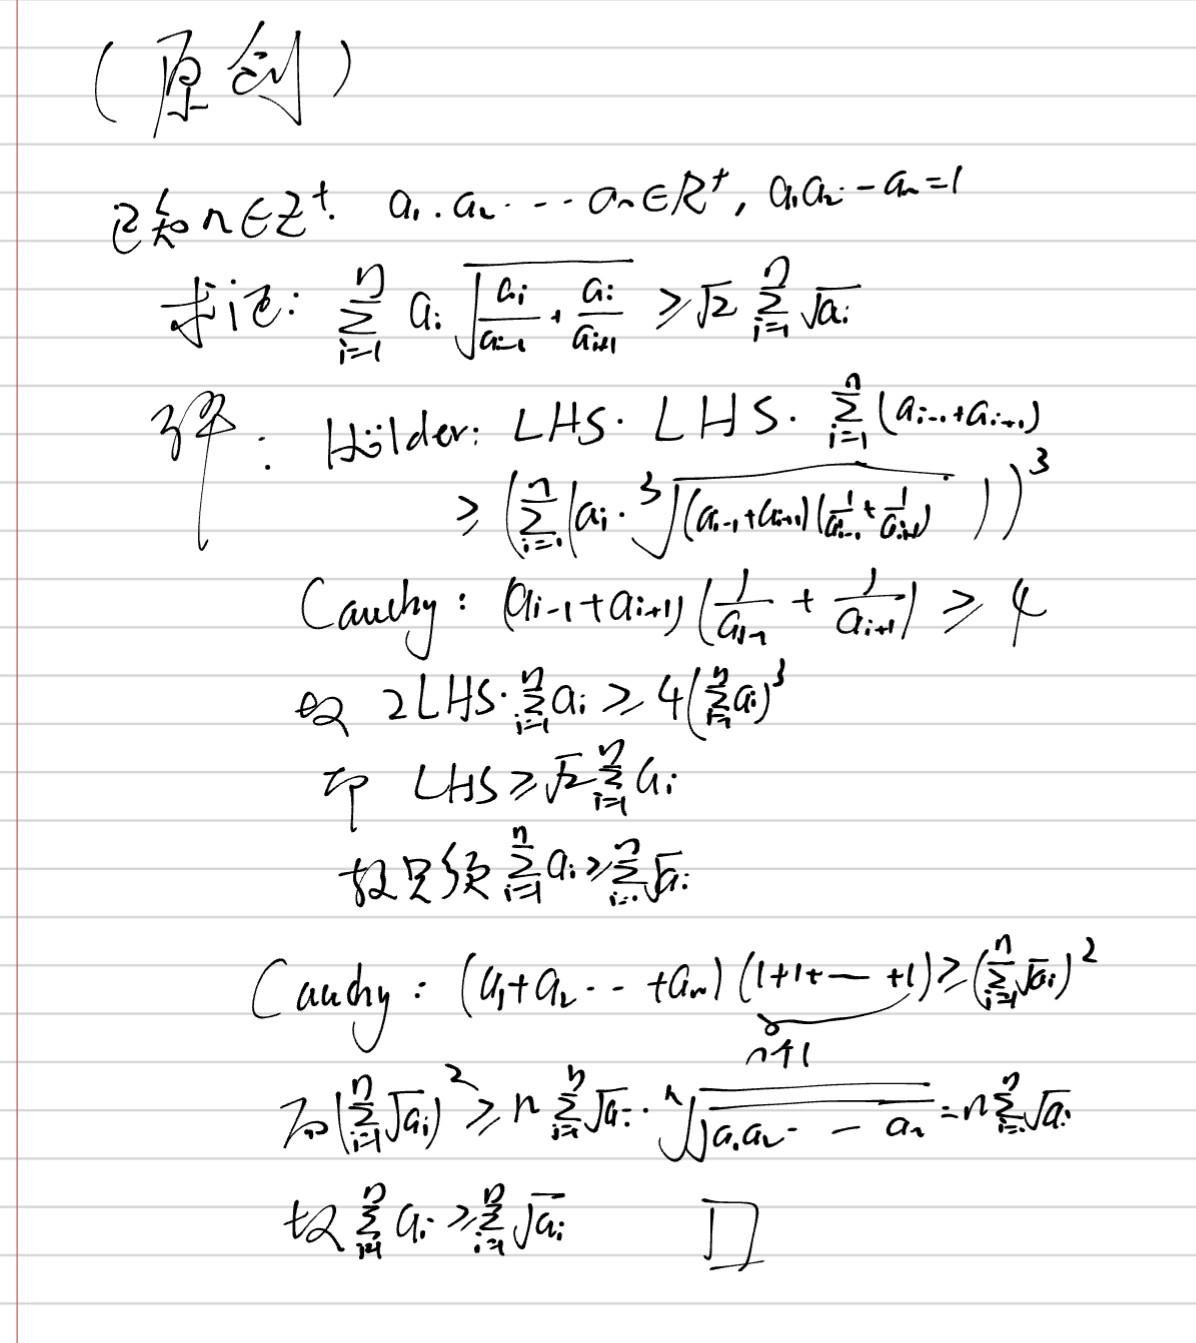 (原创)
已知n∈Z⁺. a₁.a₂.⋯aₙ∈R⁺, a₁a₂⋯aₙ=1
求证: ∑_{i=1}^{n} aᵢ √(aᵢ/aᵢ₋₁ + aᵢ/aᵢ₊₁) ≥ √2 ∑_{i=1}^{n} √aᵢ
解: Hölder: LHS·LHS·∑_{i=1}^{n}(aᵢ₋₁+aᵢ₊₁)
≥ (∑_{i=1}^{n}(aᵢ·∛((aᵢ₋₁+aᵢ₊₁)(1/aᵢ₋₁+1/aᵢ₊₁))))³
Cauchy: (aᵢ₋₁+aᵢ₊₁)(1/aᵢ₋₁ + 1/aᵢ₊₁) ≥ 4
故 2LHS·∑_{i=1}^{n}aᵢ ≥ 4(∑_{i=1}^{n}aᵢ)³
即 LHS ≥ √2 ∑_{i=1}^{n} aᵢ
故只须 ∑_{i=1}^{n} aᵢ ≥ ∑_{i=1}^{n} √aᵢ
Cauchy: (a₁+a₂⋯+aₙ)(1+1+⋯+1) ≥ (∑_{i=1}^{n}√aᵢ)²
n个1
而(∑_{i=1}^{n}√aᵢ)² ≥ n∑_{i=1}^{n}√aᵢ·ⁿ√(√(a₁a₂⋯aₙ)) = n∑_{i=1}^{n}√aᵢ
故 ∑_{i=1}^{n} aᵢ ≥ ∑_{i=1}^{n} √aᵢ □